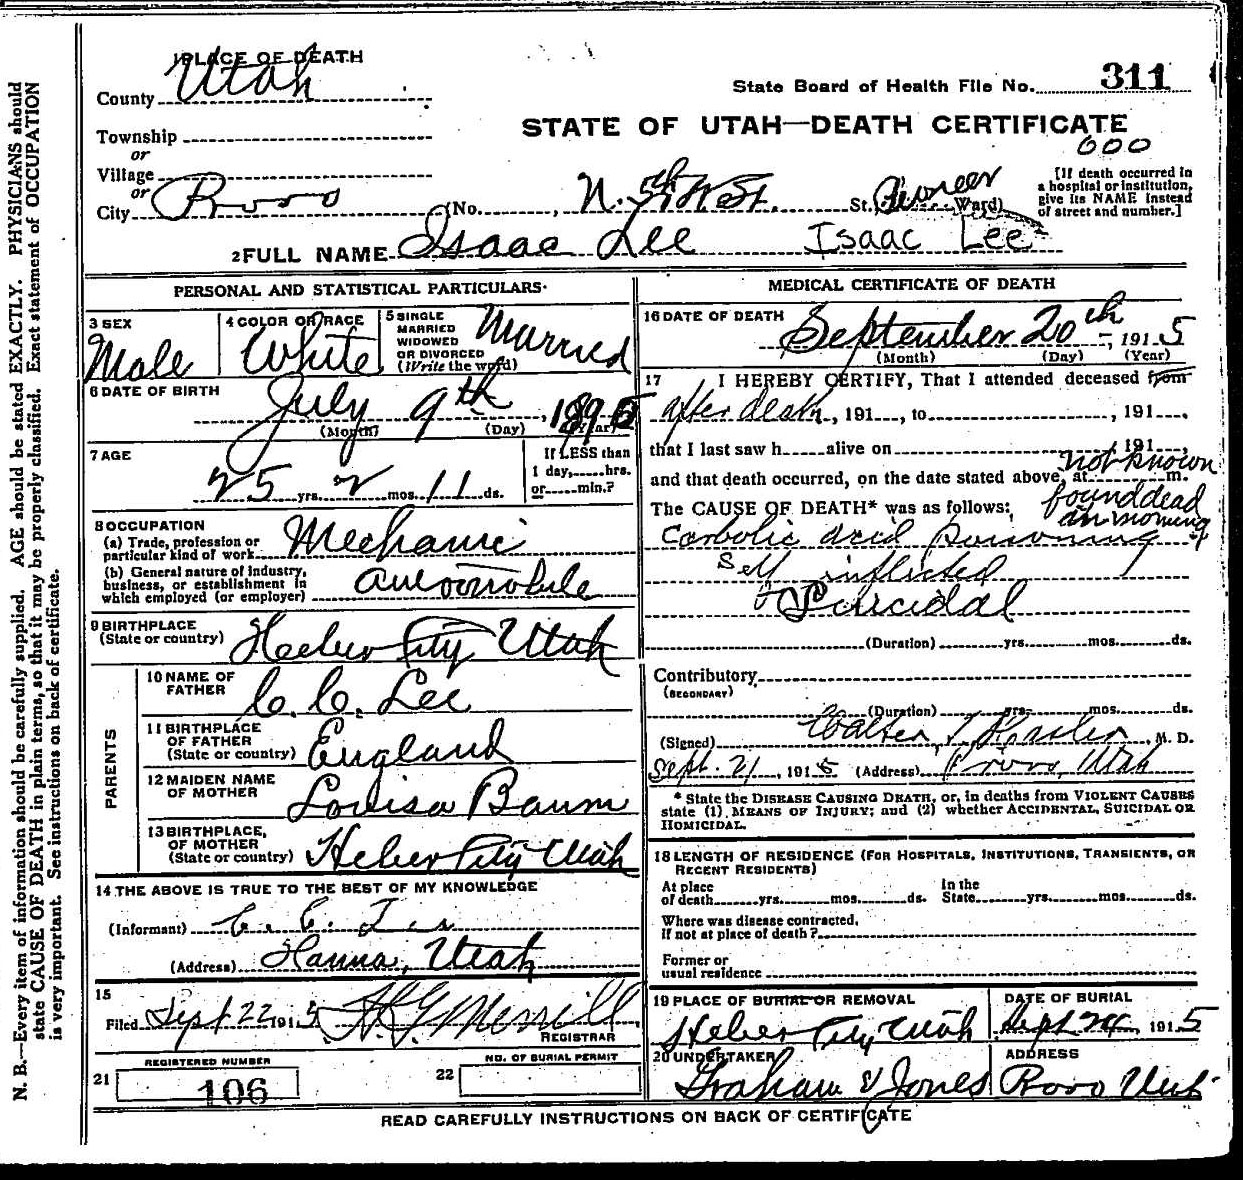 1 PLACE OF DEATH
County Utah
State Board of Health File No. 311
STATE OF UTAH—DEATH CERTIFICATE
600
Township
or
Village
or
City Provo (No. , N. 5th W. St. St., Pioneer Ward)
[If death occurred in a hospital or institution, give its NAME instead of street and number.]
2 FULL NAME Isaac Lee Isaac Lee
PERSONAL AND STATISTICAL PARTICULARS
3 SEX
Male
4 COLOR OR RACE
White
5 SINGLE
MARRIED
WIDOWED
OR DIVORCED
(Write the word)
Married
6 DATE OF BIRTH
July 9th, 189
(Month) (Day) (Year)
7 AGE
25 yrs. 2 mos. 11 ds.
If LESS than
1 day, hrs.
or min.?
8 OCCUPATION
(a) Trade, profession or
particular kind of work Mechanic
(b) General nature of industry,
business, or establishment in
which employed (or employer) automobile
9 BIRTHPLACE
(State or country) Heber City Utah
PARENTS
10 NAME OF
FATHER C. C. Lee
11 BIRTHPLACE
OF FATHER
(State or country) England
12 MAIDEN NAME
OF MOTHER Lovisa Baum
13 BIRTHPLACE,
OF MOTHER
(State or country) Heber City Utah
14 THE ABOVE IS TRUE TO THE BEST OF MY KNOWLEDGE
(Informant)
(Address) Hanna, Utah
15
Filed Sept 22 1915 Merrill
REGISTRAR
REGISTERED NUMBER
21 106
NO. OF BURIAL PERMIT
22
MEDICAL CERTIFICATE OF DEATH
16 DATE OF DEATH
September 20th, 1915
(Month) (Day) (Year)
17 I HEREBY CERTIFY, That I attended deceased from
after death, 191 , to , 191 ,
that I last saw h alive on , 191 ,
and that death occurred, on the date stated above, at not known m.
The CAUSE OF DEATH* was as follows: found dead
in morning
Carbolic acid poisoning
Self inflicted
Suicidal
(Duration) yrs. mos. ds.
Contributory
(SECONDARY)
(Duration) yrs. mos. ds.
(Signed) Walter T. Hasler, M. D.
Sept. 21, 1915 (Address) Provo, Utah
* State the DISEASE CAUSING DEATH, or, in deaths from VIOLENT CAUSES
state (1) MEANS OF INJURY; and (2) whether ACCIDENTAL, SUICIDAL OR
HOMICIDAL.
18 LENGTH OF RESIDENCE (FOR HOSPITALS, INSTITUTIONS, TRANSIENTS, OR
RECENT RESIDENTS)
At place
of death yrs. mos. ds.
In the
State yrs. mos. ds.
Where was disease contracted,
if not at place of death?
Former or
usual residence
19 PLACE OF BURIAL OR REMOVAL
Heber City Utah
DATE OF BURIAL
Sept 24, 1915
20 UNDERTAKER
Graham & Jones
ADDRESS
Provo Utah
READ CAREFULLY INSTRUCTIONS ON BACK OF CERTIFICATE
N. B.—Every item of information should be carefully supplied. AGE should be stated EXACTLY. PHYSICIANS should
state CAUSE OF DEATH in plain terms, so that it may be properly classified. Exact statement of OCCUPATION
is very important. See instructions on back of certificate.